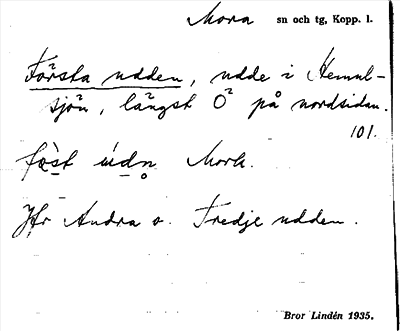 Mora sn och tg, Kopp. l.
Första udden, udde i Hemul-
sjön, längst Ö på nordsidan.
101.
fœ̀st údn̥ Mork.
Jfr Andra o. Tredje udden.
Bror Lindén 1935.